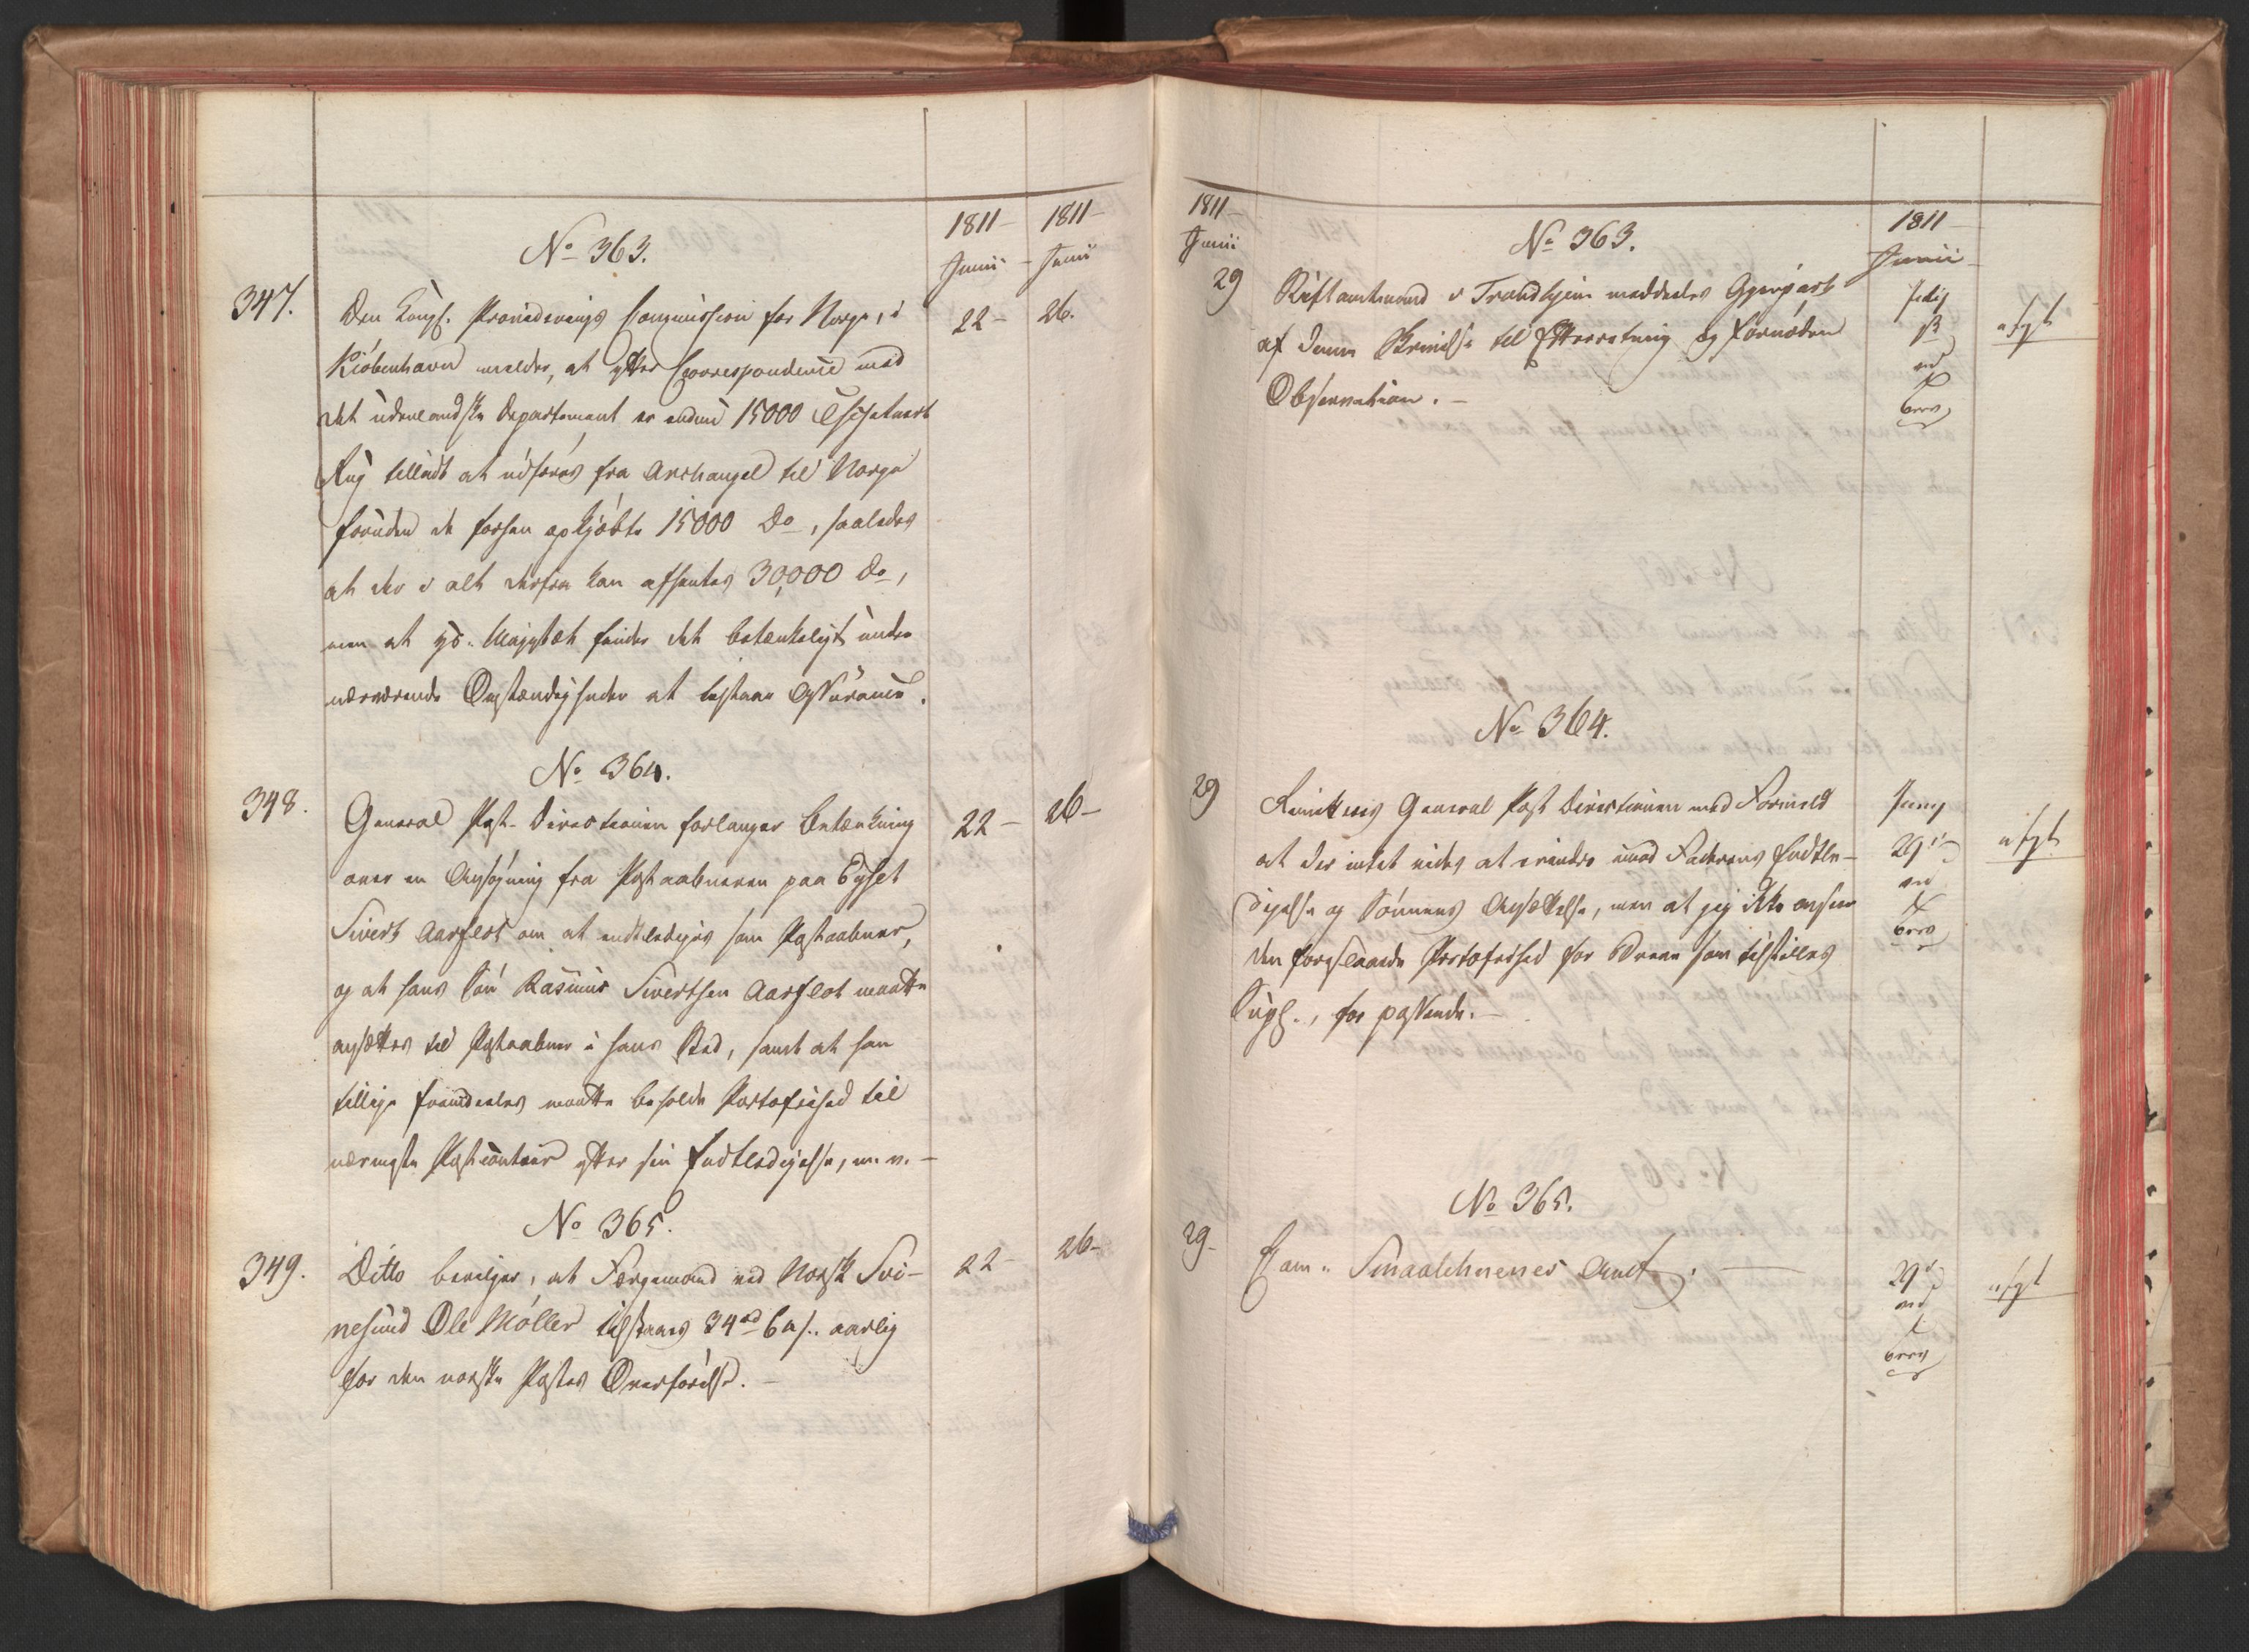 1811
1811
Junii
Junii
No 363.
347.
Den Kongl. Provideerings Commission for Norge, i
22
26.
Kiøbenhavn melder, at efter Correspondence med
det udenlandske Departement er endnu 15000 Tschetwert
Rug tilladt at udføres fra Archangel til Norge
foruden de forhen opkjøbte 15000 Do, saaledes
at der i alt derfra kan afhentes 30,000 Do,
men at hs. Majestæt finder det betænkeligt under
nærværende Omstændigheder at
No 364.
348.
General Post-Directionen forlanger Betænkning
22
26
over en Ansøgning fra Postaabneren paa
Sivert Aarflot om at entledeges som Postaabner,
og at hans Søn Rasmus Sivertsen Aarflot maatte
ansættes til Postaabner i hans Sted, samt at han
tillige fremdeles maatte beholde Portofrihed til
nærmeste Postcontoir efter sin Entledigelse, m. v.
No 365.
349.
Ditto bevilger, at Færgemand ved Norsk Svi-
22
26
nesund Ole Møller tilstaaes 34 rd 6 s. aarlig
for den norske Postes Overførelse.
1811
Junii
1811
Junii
No 363.
29
Stiftamtmand i Trondhjem meddeles Gjenpart
afgt
af denne Skrivelse til Efterretning og fornøden
Observation.
No 364.
29
Remitteres General Post Directionen med Formeld
29
afgt
at der intet vides at erindre imod Faderens Entle-
digelse og Sønnens Ansættelse, men at jeg ikke anseer
den foreslaaede Portofrihed for Breve som tilstilles
for passende.
No 365.
29
Com. Smaalehnenes Amt.
29
afgt